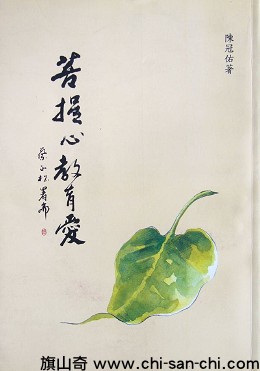 陳冠佑著
菩提心教育愛
旗山奇 www.chi-san-chi.com